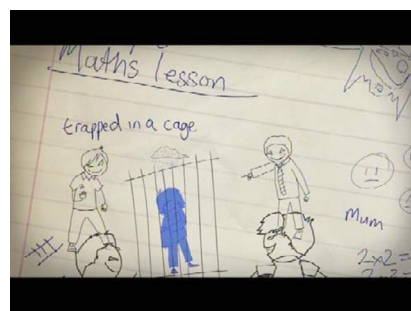 Maths lesson
trapped in a cage
Mum
2x2=
2x2=